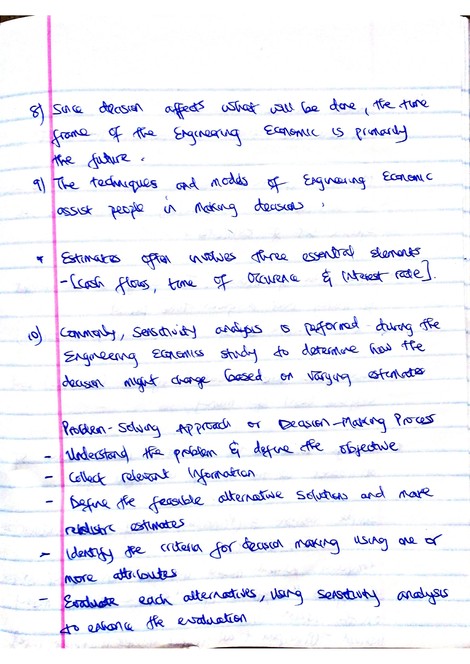 8) Since decision affects what will be done, the time
frame of the Engineering Economic is primarily
the future.
9) The techniques and models of Engineering Economic
assist people in making decisions.
* Estimates often involves three essential elements
-[cash flows, time of occurence & interest rate].
10) Commonly, sensitivity analysis is performed during the
Engineering Economics study to determine how the
decision might change based on varying estimates
Problem-Solving Approach or Decision-Making Process
- Understand the problem & define the objective
- Collect relevant information
- Define the feasible alternative solutions and make
realistic estimates
- Identify the criteria for decision making using one or
more attributes
- Evaluate each alternatives, using sensitivity analysis
to enhance the evaluation